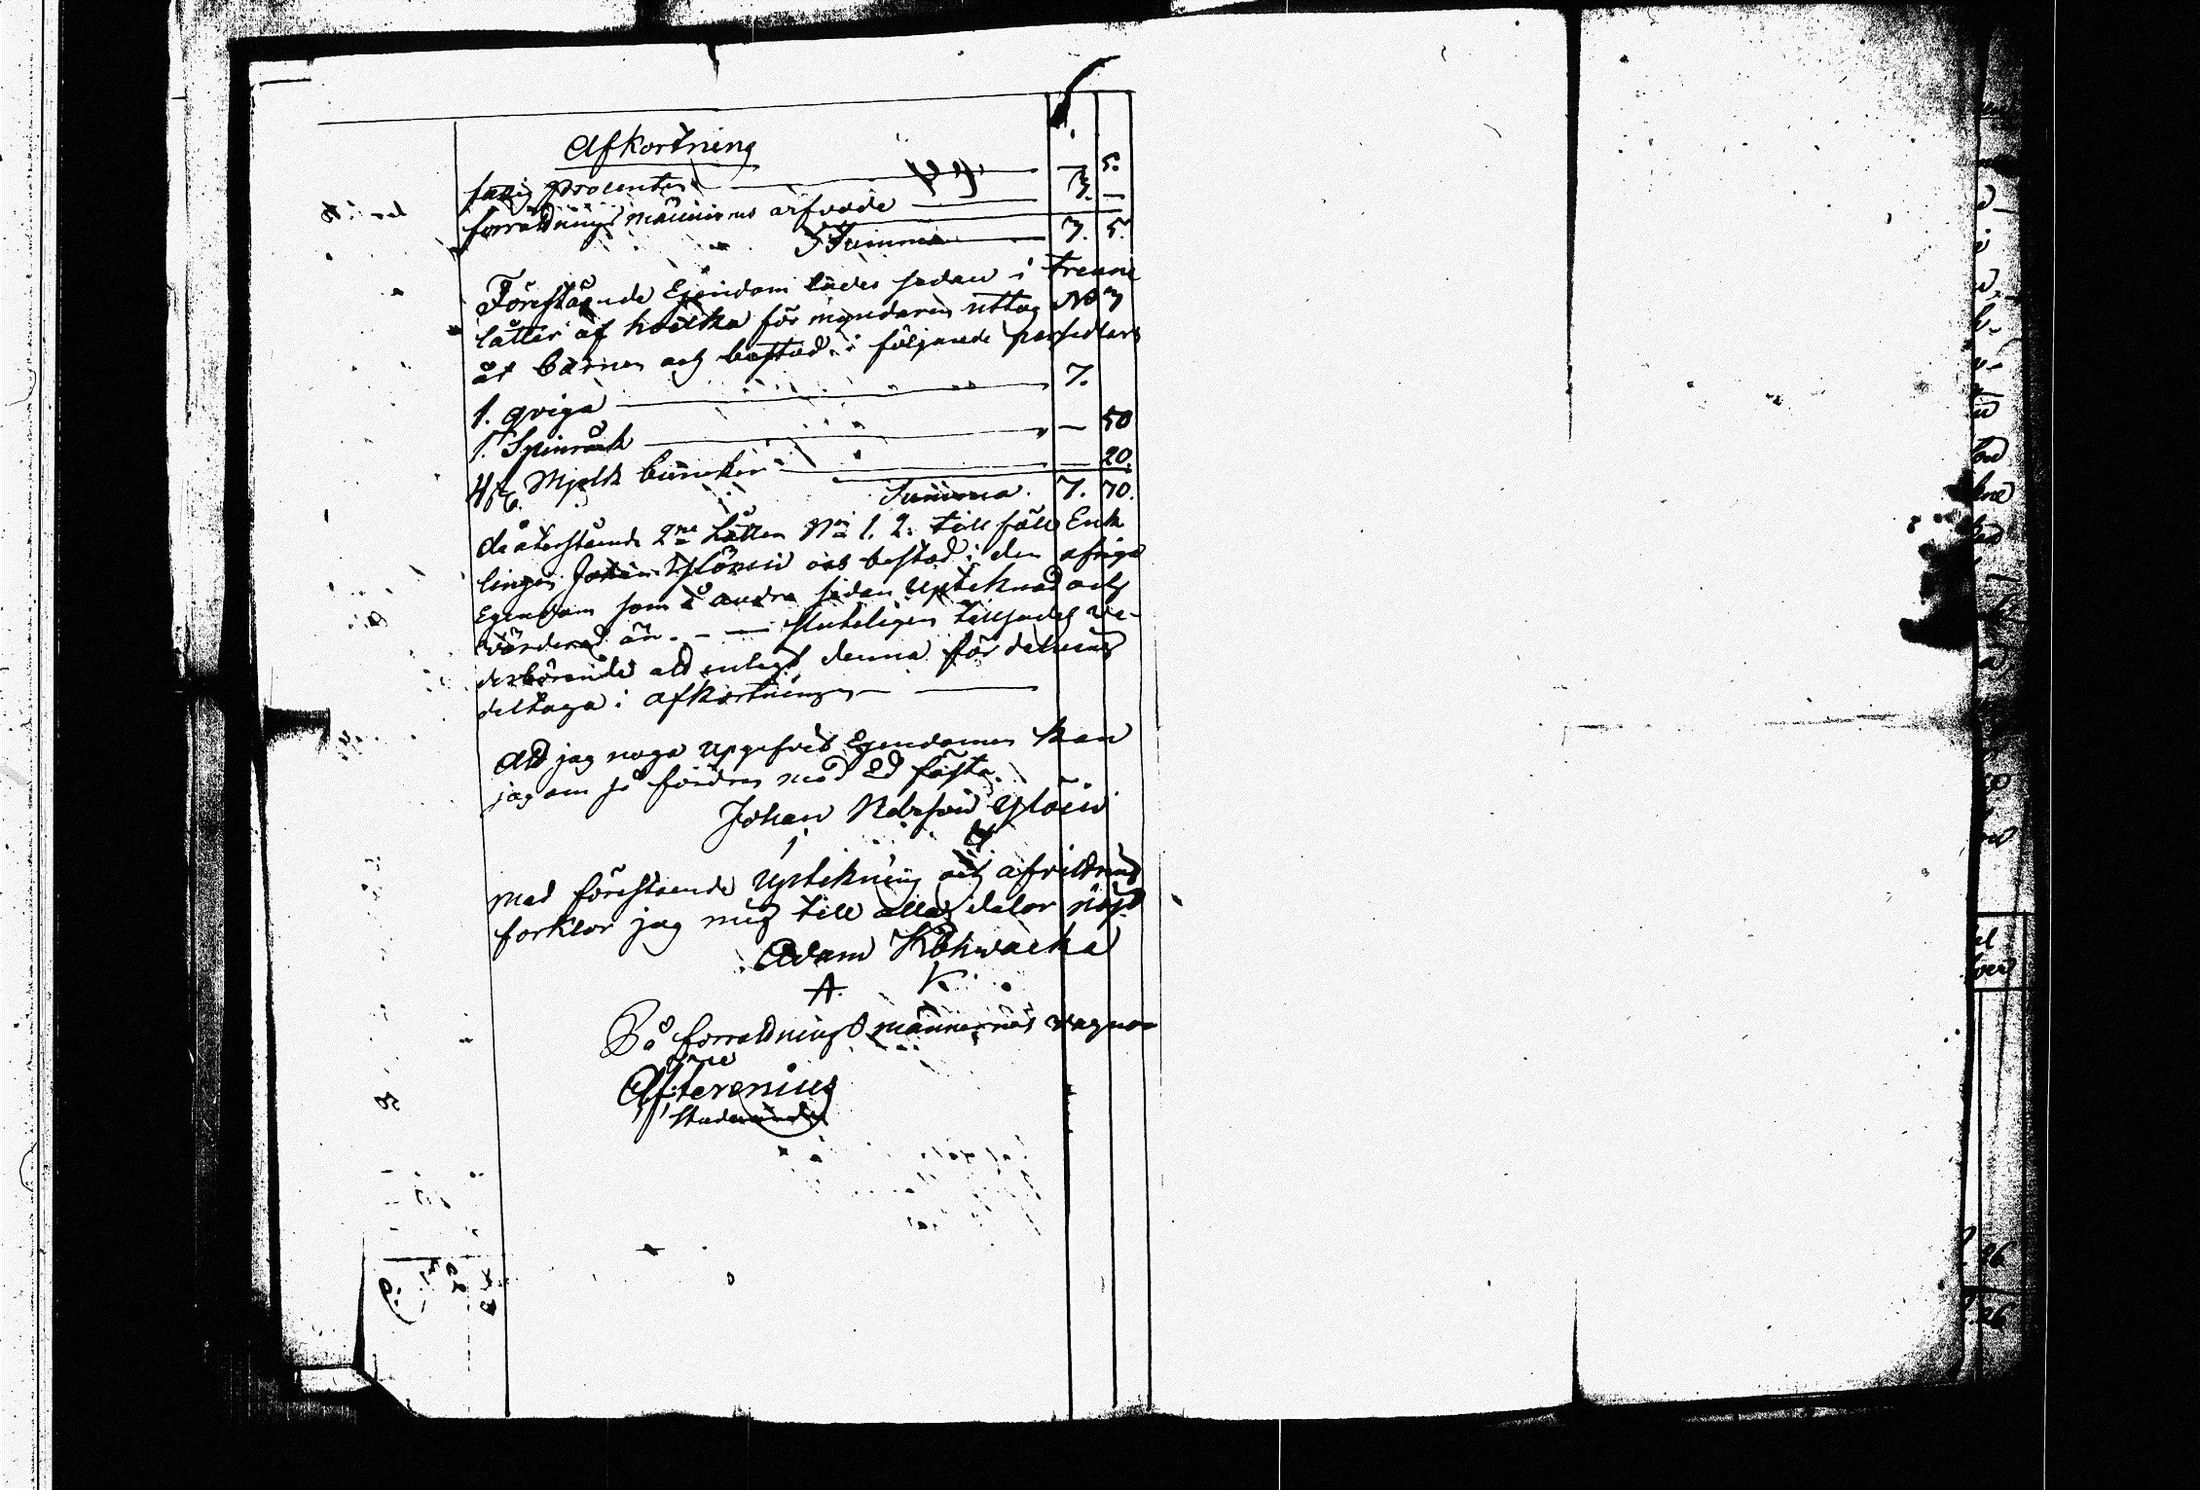 Afkortning
fattig procenten — — 5.
forrättnings männernas arfvode — 7. —
Summa — 7. 5.
Förestående Egendom lades sedan i trenne
låtter af hvilka förmyndaren uttog No 3
åt barnen och bestod i följande persedlar
1. qviga — 7.
1. Spinråck — — 50
4 st. Mjölk bunckar — — 20.
Summa. 7. 70.
de återstående 2ne Låtter No 1. 2. till föll Enk
lingen Johan Ylönen och bestod i den öfriga
Egendom som å andra sidan uptecknad och
värderad är. — — Sluteligen tillsades ve-
derbörande att enligt denna fördelning
deltaga i afkortningen —
Att jag noga upgifvit Egendomen kan
jag om så fordras med Ed fästa.
Johan Ylönen
med föreståender uptekning och afvittring
forklar jag mig till alla delar nöjd
Adam
A. K.
På forrättnings männernas vagnar
studerande